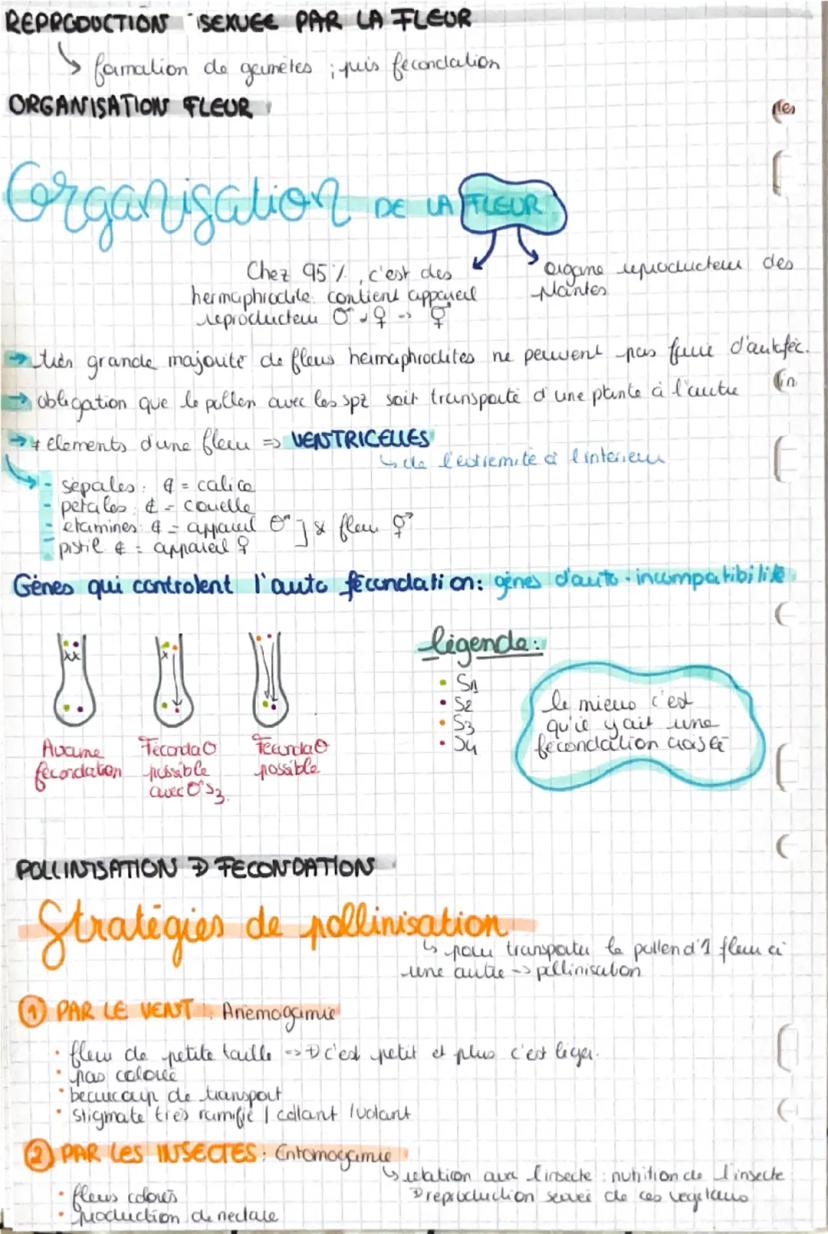 REPRODUCTION SEXUEE PAR LA FLEUR
↳ formation de gamètes ; puis fécondation
ORGANISATION FLEUR
Organisation DE LA FLEUR
Chez 95 %, c'est des
hermaphrodite contient appareil
reproducteur ♂ + ♀ → ⚥
organe reproducteur des
plantes
→ très grande majorité de fleurs hermaphrodites ne peuvent pas faire d'autoféc.
→ obligation que le pollen avec les spz soit transporté d'une plante à l'autre
→ 4 éléments d'une fleur => VENTRICELLES
↳ de l'extrémité à l'intérieur
- sépales : = calice
- pétales : = corolle
- étamines = appareil ♂
- pistil = appareil ♀
fleur ⚥
Gènes qui controlent l'auto fécondation : gènes d'auto-incompatibilité
légende :
• S1
• S2
• S3
• S4
le mieux c'est
qu'il y ait une
fécondation croisée
Aucune
fécondation
Fécondaᵒ
possible
avec S3.
Fécondaᵒ
possible
POLLINISATION → FECONDATION
Stratégies de pollinisation
↳ pour transporter le pollen d'1 fleur à
une autre -> pollinisation
① PAR LE VENT : Anémogamie
• fleur de petite taille => + c'est petit et plus c'est léger.
• pas colorée
• beaucoup de transport
• stigmate très ramifié / collant / volant
② PAR LES INSECTES : Entomogamie
↳ relation avec l'insecte : nutrition de l'insecte
reproduction sexuée de ces végétaux
• fleurs colorés
• production de nectare